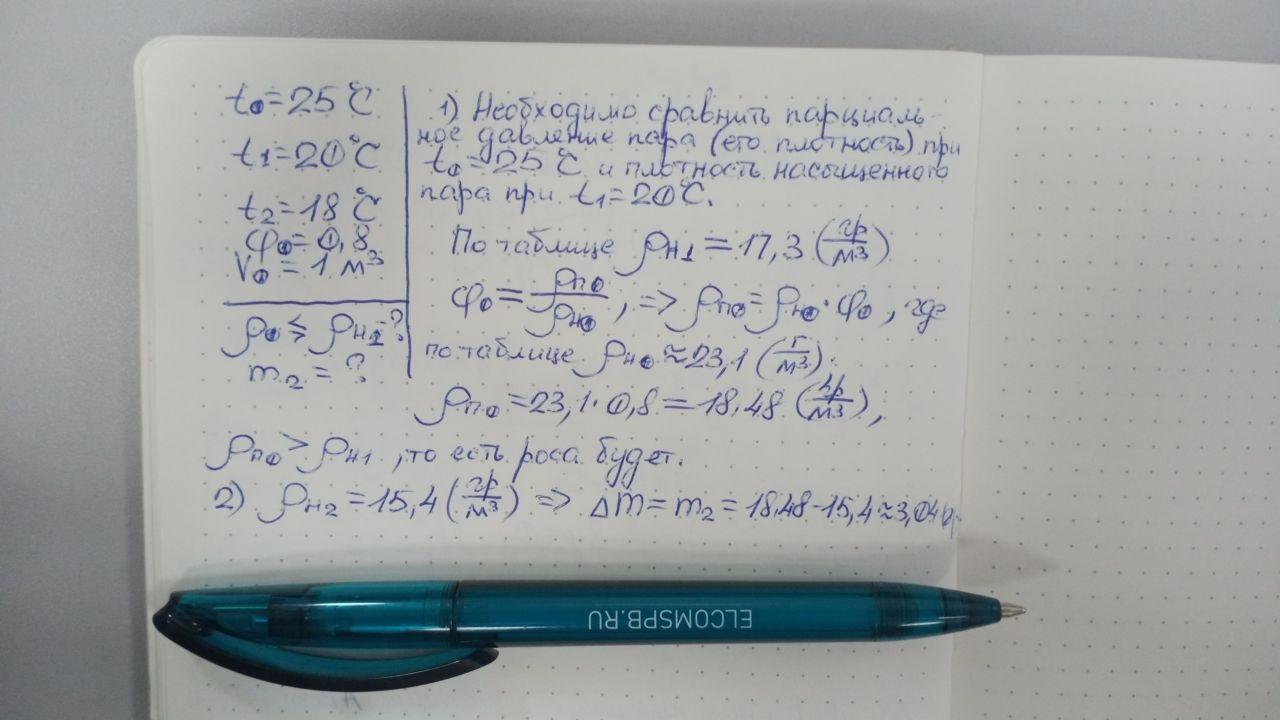 t₀ = 25 °C
t₁ = 20 °C
t₂ = 18 °C
φ₀ = 0,8
V₀ = 1 м³
ρ₀ ≶ ρн₁ - ?
m₂ = ?
1) Необходимо сравнить парциаль-
ное давление пара (его плотность) при
t₀ = 25 °C и плотность насыщенного
пара при t₁ = 20 °C.
По таблице ρн₁ = 17,3 (гр/м³)
φ₀ = ρп₀/ρн₀, => ρп₀ = ρн₀ · φ₀, где
по таблице ρн₀ ≈ 23,1 (г/м³).
ρп₀ = 23,1 · 0,8 = 18,48 (гр/м³),
ρп₀ > ρн₁, то есть роса будет.
2) ρн₂ = 15,4 (гр/м³) => Δm = m₂ = 18,48 - 15,4 ≈ 3,04 гр.
ELCOMSPB.RU